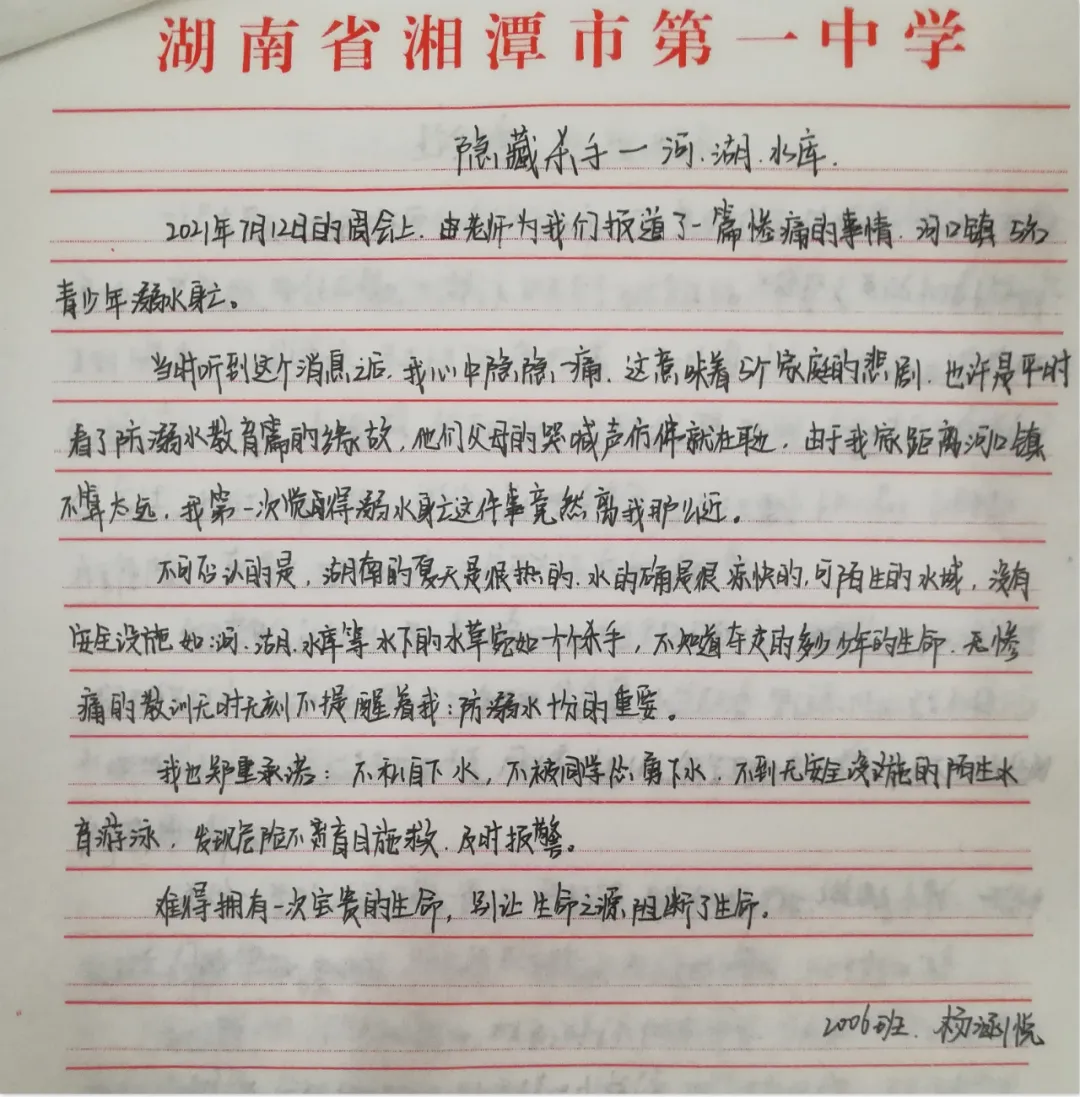 湖南省湘潭市第一中学
隐藏杀手一河.湖.水库.
2021年7月12日的周会上.由老师为我们报道了一篇惨痛的事情.河口镇5名
青少年溺水身亡。
当时听到这个消息之后.我心中隐隐一痛.这意味着5个家庭的悲剧.也许是平时
看了防溺水教育篇的缘故,他们父母的哭喊声仿佛就在耳边.由于我家距离河口镇
不算太远.我第一次觉得溺水身亡这件事竟然离我那么近。
不可否认的是,湖南的夏天是很热的.水的确是很凉快的,可陌生的水域,没有
安全设施如:河.湖.水库等水下的水草宛如一个个杀手,不知道夺走的多少少年的生命.无惨
痛的教训无时无刻不提醒着我:防溺水十分的重要。
我也郑重承诺:不私自下水,不被同学怂勇下水.不到无安全设施的陌生水
育游泳,发现危险不盲目施救.及时报警。
难得拥有一次宝贵的生命,别让生命之源阻断了生命。
2006班.杨涵悦